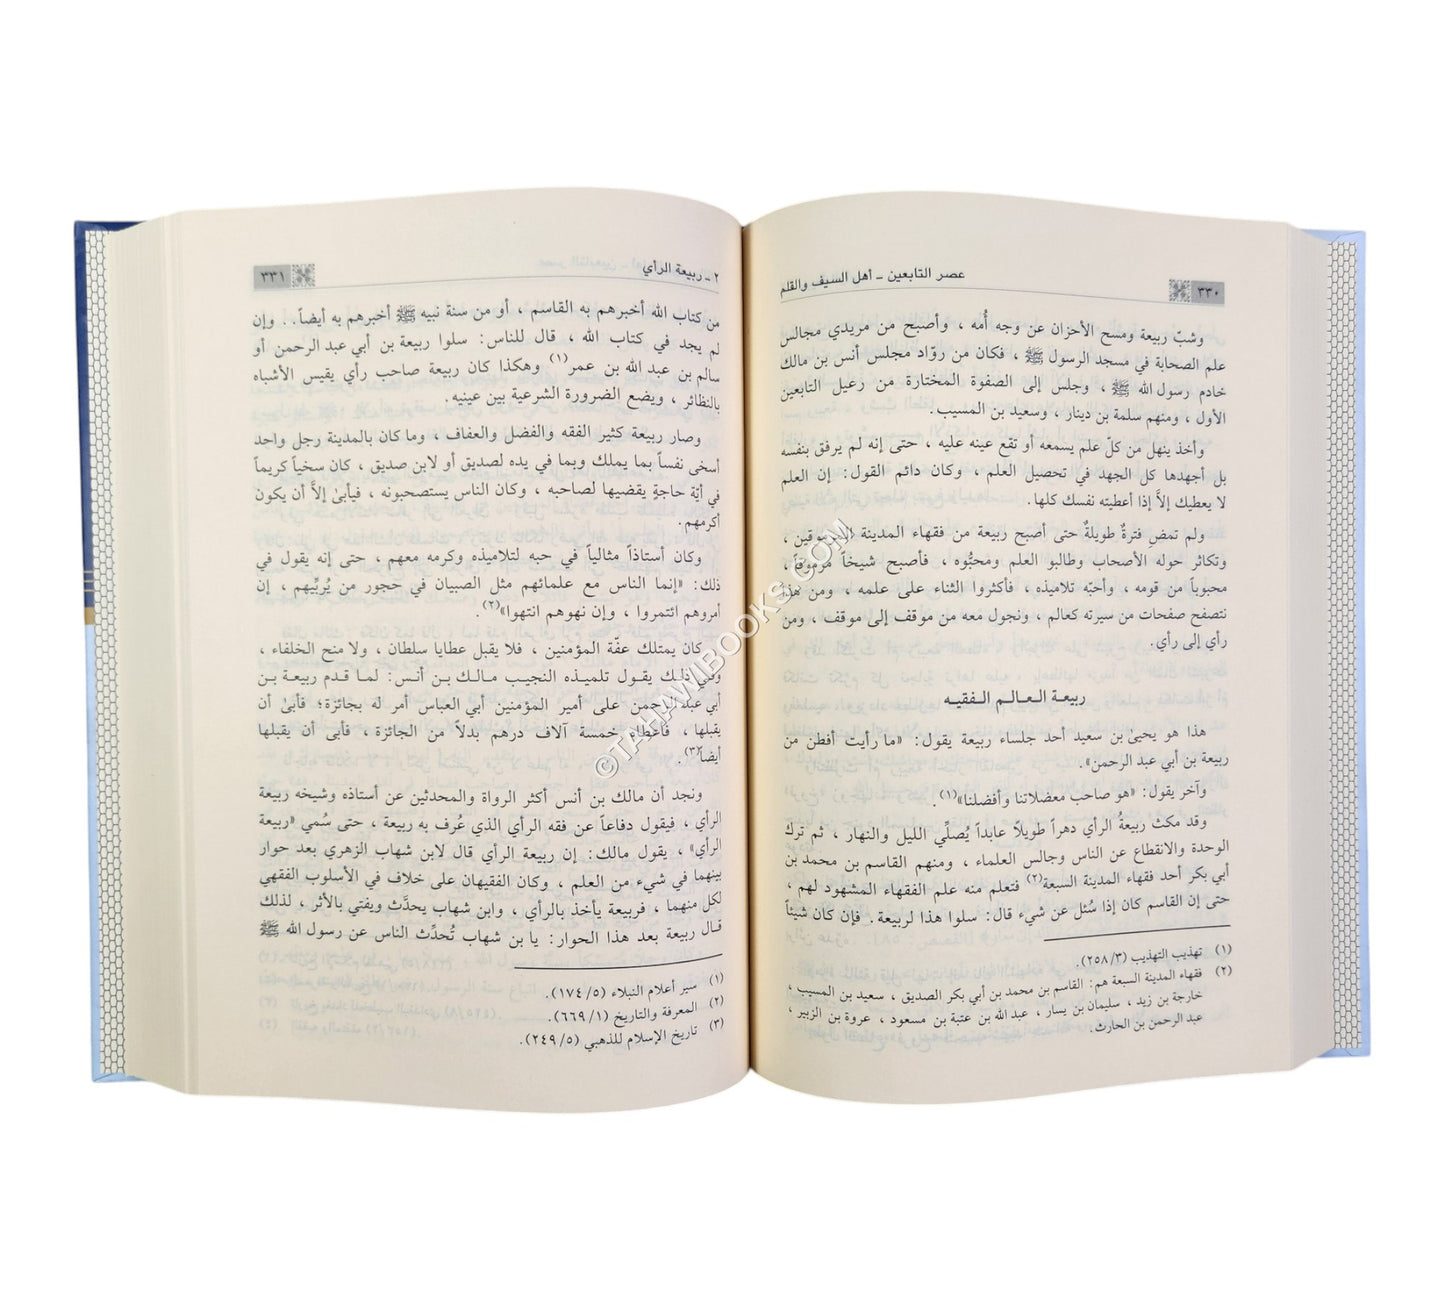 ٣٣٠
عصر التابعين - أهل السيف والقلم
وشبّ ربيعة ومسح الأحزان عن وجه أُمه ، وأصبح من مريدي مجالس
علم الصحابة في مسجد الرسول ﷺ ، فكان من روّاد مجلس أنس بن مالك
خادم رسول الله ﷺ ، وجلس إلى الصفوة المختارة من رعيل التابعين
الأول ، ومنهم سلمة بن دينار ، وسعيد بن المسيب.
وأخذ ينهل من كلّ علم يسمعه أو تقع عينه عليه ، حتى إنه لم يرفق بنفسه
بل أجهدها كل الجهد في تحصيل العلم ، وكان دائم القول: إن العلم
لا يعطيك إلَّا إذا أعطيته نفسك كلها.
ولم تمضِ فترةٌ طويلةٌ حتى أصبح ربيعة من فقهاء المدينة المرموقين ،
وتكاثر حوله الأصحاب وطالبو العلم ومحبُّوه ، فأصبح شيخاً مرموقاً ،
محبوباً من قومه ، وأحبّه تلاميذه ، فأكثروا الثناء على علمه ، ومن هذا
نتصفح صفحات من سيرته كعالم ، ونجول معه من موقف إلى موقف ، ومن
رأي إلى رأي.
ربيعة العالم الفقيه
هذا هو يحيىٰ بن سعيد أحد جلساء ربيعة يقول: «ما رأيت أفطن من
ربيعة بن أبي عبد الرحمن».
وآخر يقول: «هو صاحب معضلاتنا وأفضلنا»(١).
وقد مكث ربيعةُ الرأي دهراً طويلاً عابداً يُصلِّي الليل والنهار ، ثم ترك
الوحدة والانقطاع عن الناس وجالس العلماء ، ومنهم القاسم بن محمد بن
أبي بكر أحد فقهاء المدينة السبعة(٢) فتعلم منه علم الفقهاء المشهود لهم ،
حتى إن القاسم كان إذا سُئل عن شيء قال: سلوا هذا لربيعة. فإن كان شيئاً
(١) تهذيب التهذيب (٢٥٨/٣).
(٢) فقهاء المدينة السبعة هم: القاسم بن محمد بن أبي بكر الصديق ، سعيد بن المسيب ،
خارجة بن زيد ، سليمان بن يسار ، عبد الله بن عتبة بن مسعود ، عروة بن الزبير ،
عبد الرحمن بن الحارث.
٢ - ربيعة الرأي
٣٣١
من كتاب الله أخبرهم به القاسم ، أو من سنة نبيه ﷺ أخبرهم به أيضاً.. وإن
لم يجد في كتاب الله ، قال للناس: سلوا ربيعة بن أبي عبد الرحمن أو
سالم بن عبد الله بن عمر(١) وهكذا كان ربيعة صاحب رأي يقيس الأشباه
بالنظائر ، ويضع الضرورة الشرعية بين عينيه.
وصار ربيعة كثير الفقه والفضل والعفاف ، وما كان بالمدينة رجل واحد
أسخى نفساً بما يملك وبما في يده لصديق أو لابن صديق ، كان سخياً كريماً
في أيّة حاجةٍ يقضيها لصاحبه ، وكان الناس يستصحبونه ، فيأبىٰ إلاَّ أن يكون
أكرمهم.
وكان أستاذاً مثالياً في حبه لتلاميذه وكرمه معهم ، حتى إنه يقول في
ذلك: «إنما الناس مع علمائهم مثل الصبيان في حجور من يُربِّيهم ، إن
أمروهم ائتمروا ، وإن نهوهم انتهوا»(٢).
كان يمتلك عفّة المؤمنين ، فلا يقبل عطايا سلطان ، ولا منح الخلفاء ،
وفي ذلك يقول تلميذه النجيب مالك بن أنس: لما قدم ربيعة بن
أبي عبد الرحمن على أمير المؤمنين أبي العباس أمر له بجائزة؛ فأبىٰ أن
يقبلها ، فأعطاه خمسة آلاف درهم بدلاً من الجائزة ، فأبى أن يقبلها
أيضاً(٣).
ونجد أن مالك بن أنس أكثر الرواة والمحدثين عن أستاذه وشيخه ربيعة
الرأي ، فيقول دفاعاً عن فقه الرأي الذي عُرف به ربيعة ، حتى سُمي «ربيعة
الرأي» ، يقول مالك: إن ربيعة الرأي قال لابن شهاب الزهري بعد حوار
بينهما في شيء من العلم ، وكان الفقيهان على خلاف في الأسلوب الفقهي
لكل منهما ، فربيعة يأخذ بالرأي ، وابن شهاب يحدَّث ويفتي بالأثر ، لذلك
قال ربيعة بعد هذا الحوار: يا بن شهاب تُحدِّث الناس عن رسول الله ﷺ
(١) سير أعلام النبلاء (١٧٤/٥).
(٢) المعرفة والتاريخ (٦٦٩/١).
(٣) تاريخ الإسلام للذهبي (٢٤٩/٥).
©TAHAWIBOOKS.COM